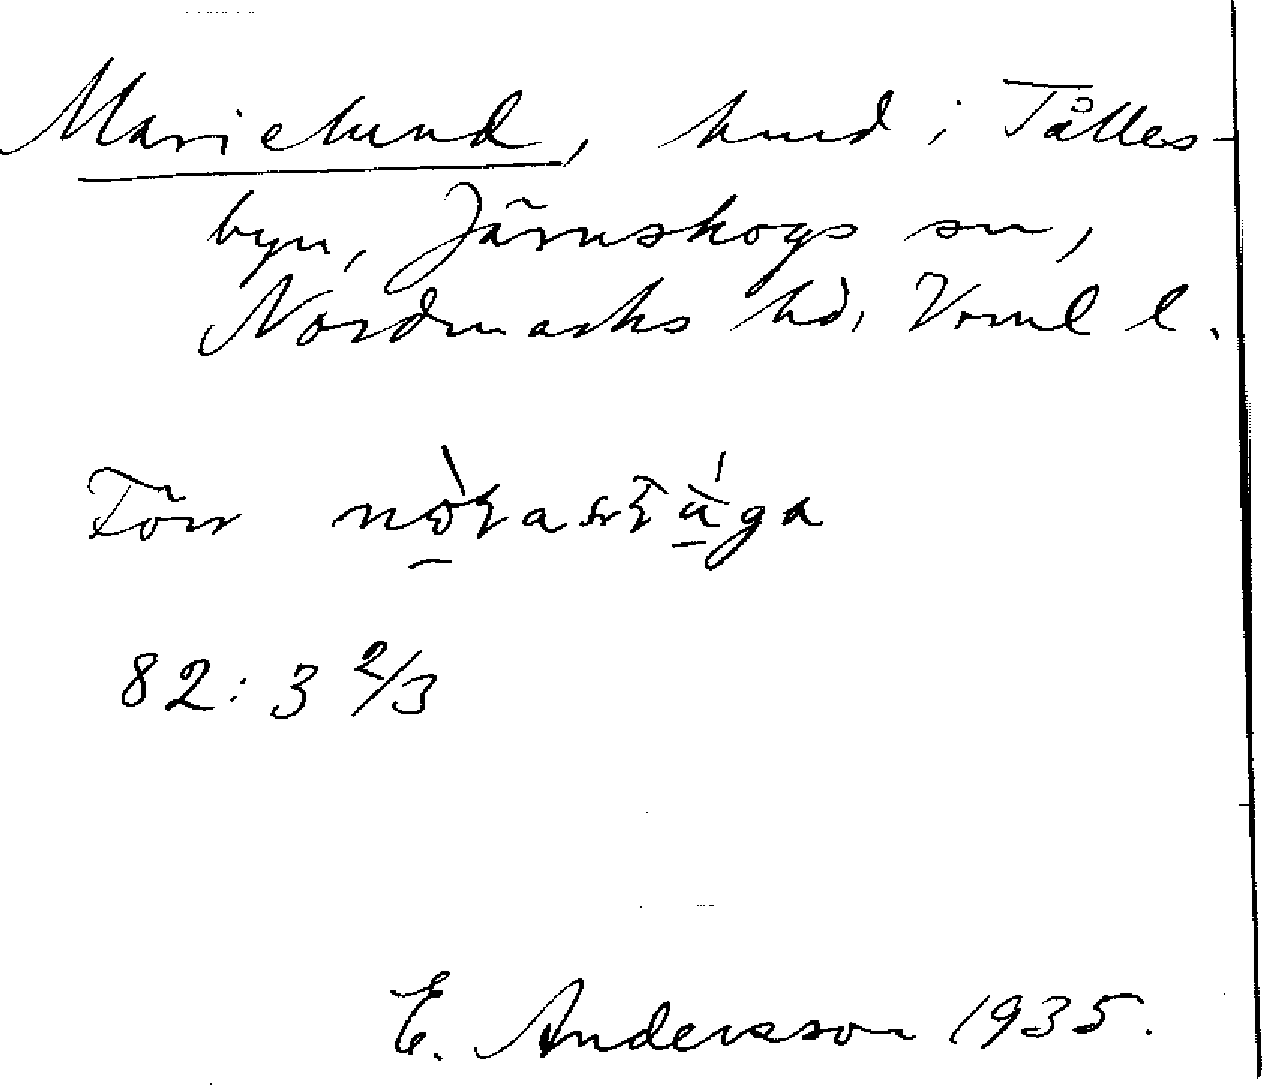 Marielund, hmd i Tålles-
byn, Järnskogs sn,
Nordmarks hd, Vrml l.
Förr
82:3 2/3
E. Andersson 1935.